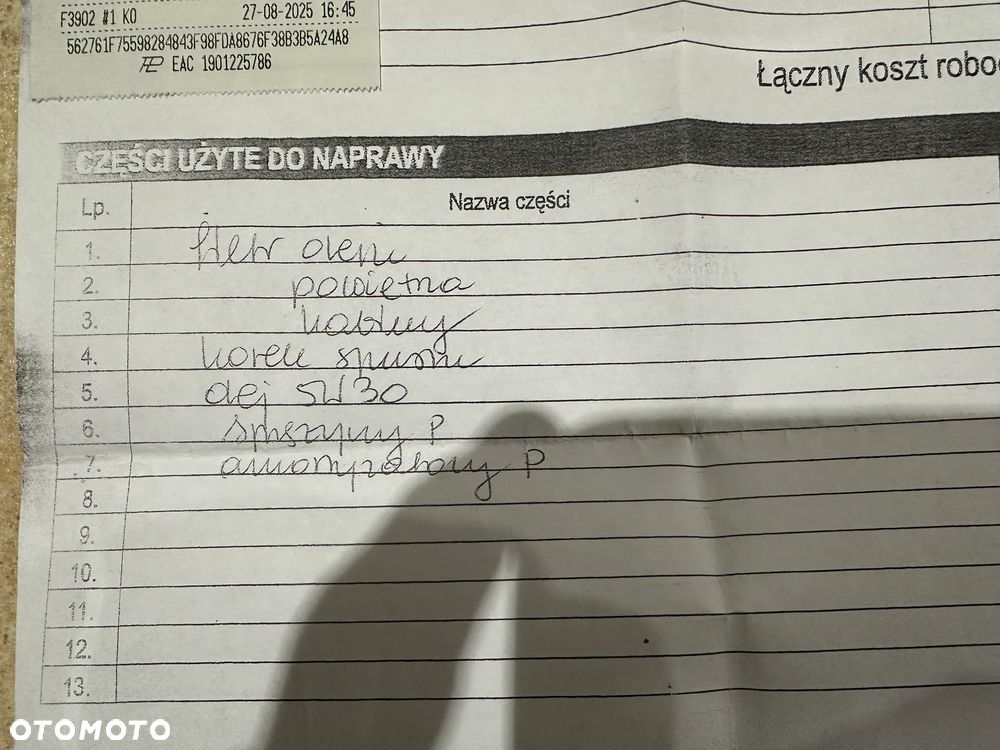 F3902 #1 KO 27-08-2025 16:45
562761F75598284843F98FDA8676F38B3B5A24A8
EAC 1901225786
Łączny koszt roboc
CZĘŚCI UŻYTE DO NAPRAWY
Lp. Nazwa części
1. filetr oleju
2. powietrza
3. kabiny
4. korek spustu
5. olej 5W30
6. sprężyny P
7. amortyzatory P
8.
9.
10.
11.
12.
13.
OTOMOTO